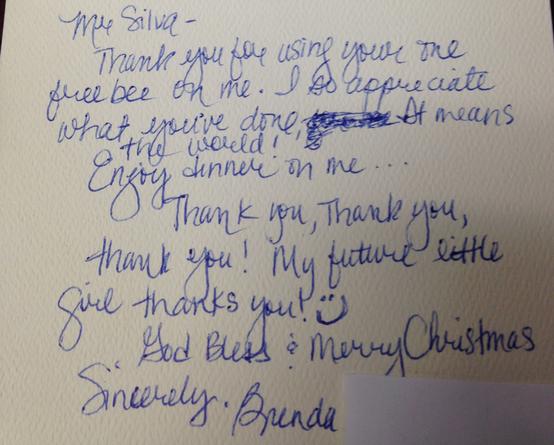 Mr Silva -
Thank you for using your one
freebee on me. I so appreciate
what you've done, It means
the world!
Enjoy dinner on me ...
Thank you, Thank you,
thank you! My future little
girl thanks you!
God Bless & Merry Christmas
Sincerely. Brenda